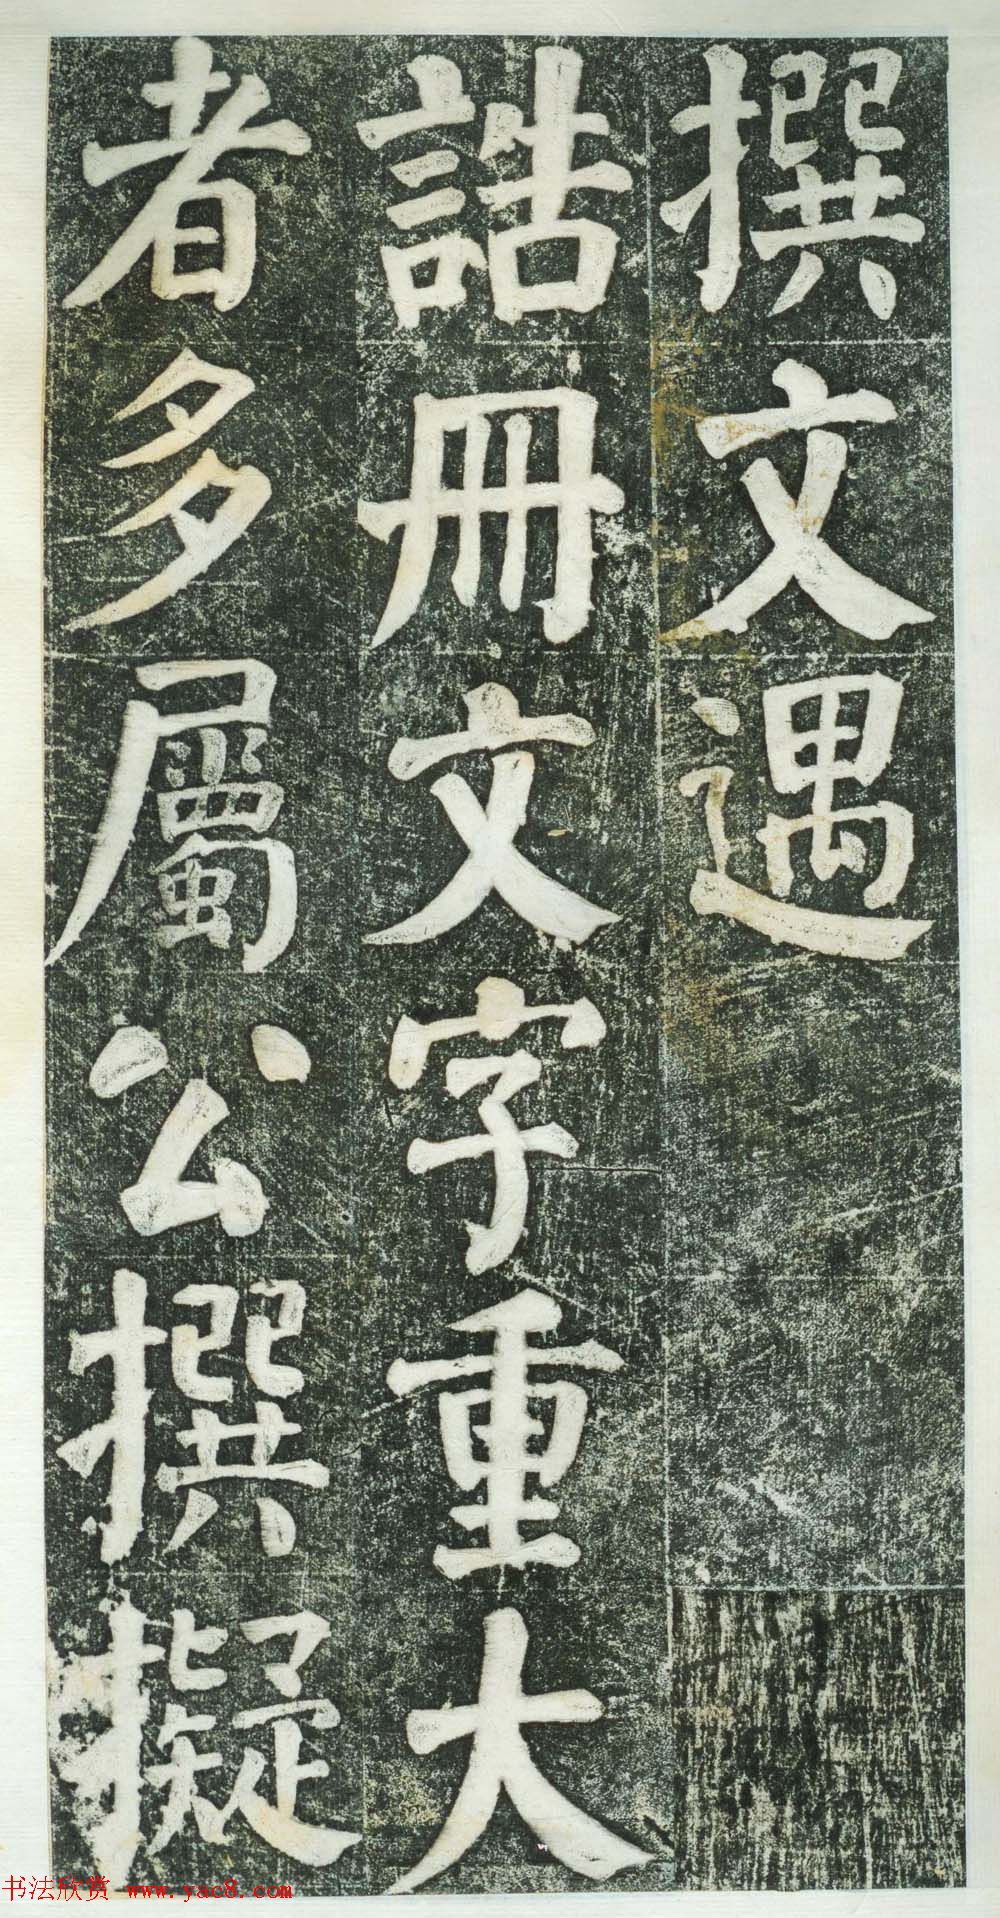 撰文遇
誥冊文字重大
者多屬公撰擬
书法欣赏 www.yac8.com